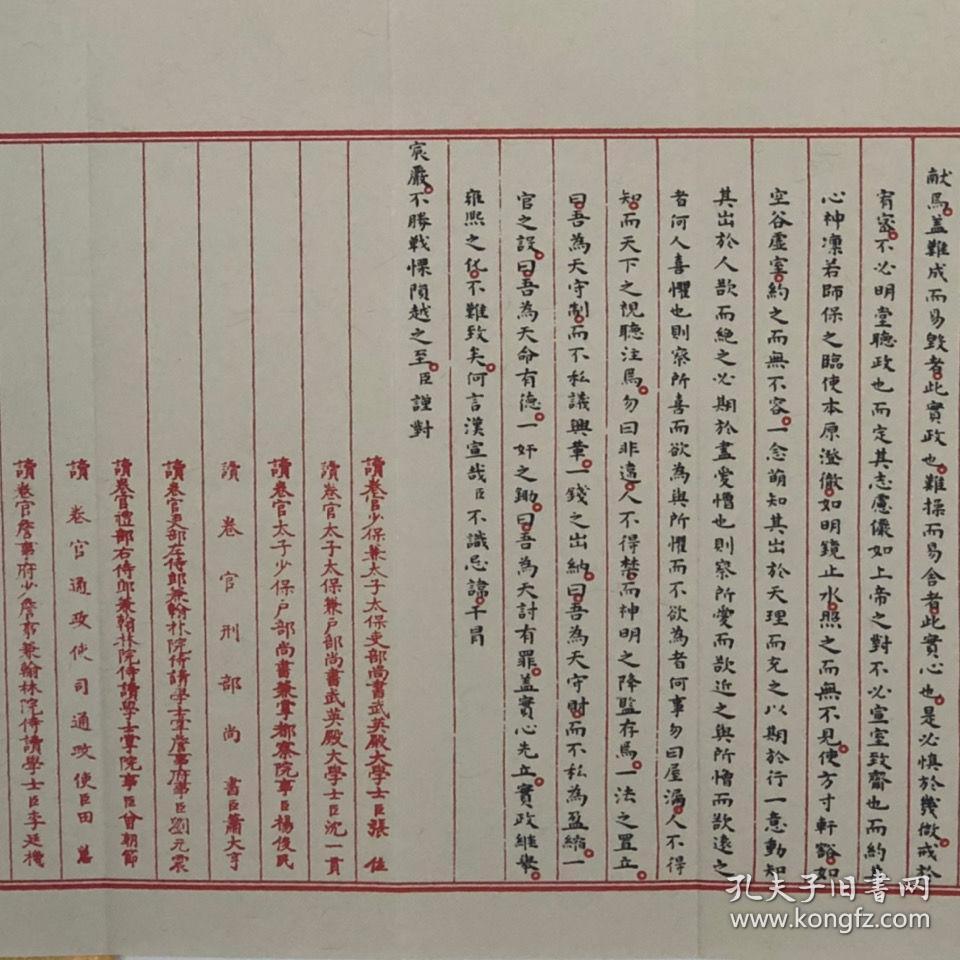 献焉。蓋難成而易毀者。此實政也。難操而易舍者。此實心也。是必慎於幾微。戒於
宥密。不必明堂聽政也而定其志慮儼如上帝之對不必宣室致齋也而約其
心神凜若師保之臨使本原澄徹。如明鏡止水。照之而無不見。使方寸軒豁。如
空谷虛室。約之而無不容。一念萌知其出於天理而充之以期於行一意動知
其出於人欲而絕之必期於盡愛憎也則察所愛而欲近之與所憎而欲遠之
者何人喜懼也則察所喜而欲為與所懼而不欲為者何事勿曰屋漏。人不得
知。而天下之視聽注焉。勿曰非違。人不得禁。而神明之降監存焉。一法之置立。
曰吾為天守制。而不私議興革。一錢之出納。曰吾為天守財。而不私為盈縮。一
官之設。曰吾為天命有德。一奸之鋤。曰吾為天討有罪。蓋實心先立。實政繼舉。
雍熙之化。不難致矣。何言漢宣哉。臣不識忌諱。干冒
宸嚴。不勝戰慄隕越之至。臣謹對
讀卷官少保兼太子太保吏部尚書武英殿大學士臣張位
讀卷官太子太保兼戶部尚書武英殿大學士臣沈一貫
讀卷官太子少保戶部尚書兼掌都察院事臣楊俊民
讀卷官刑部尚書臣蕭大亨
讀卷官吏部左侍郎兼翰林院侍讀學士掌詹事府事臣劉元震
讀卷官禮部右侍郎兼翰林院侍讀學士掌院事臣曾朝節
讀卷官通政使司通政使臣田
讀卷官詹事府少詹事兼翰林院侍讀學士臣李廷機
孔夫子旧书网
www.kongfz.com